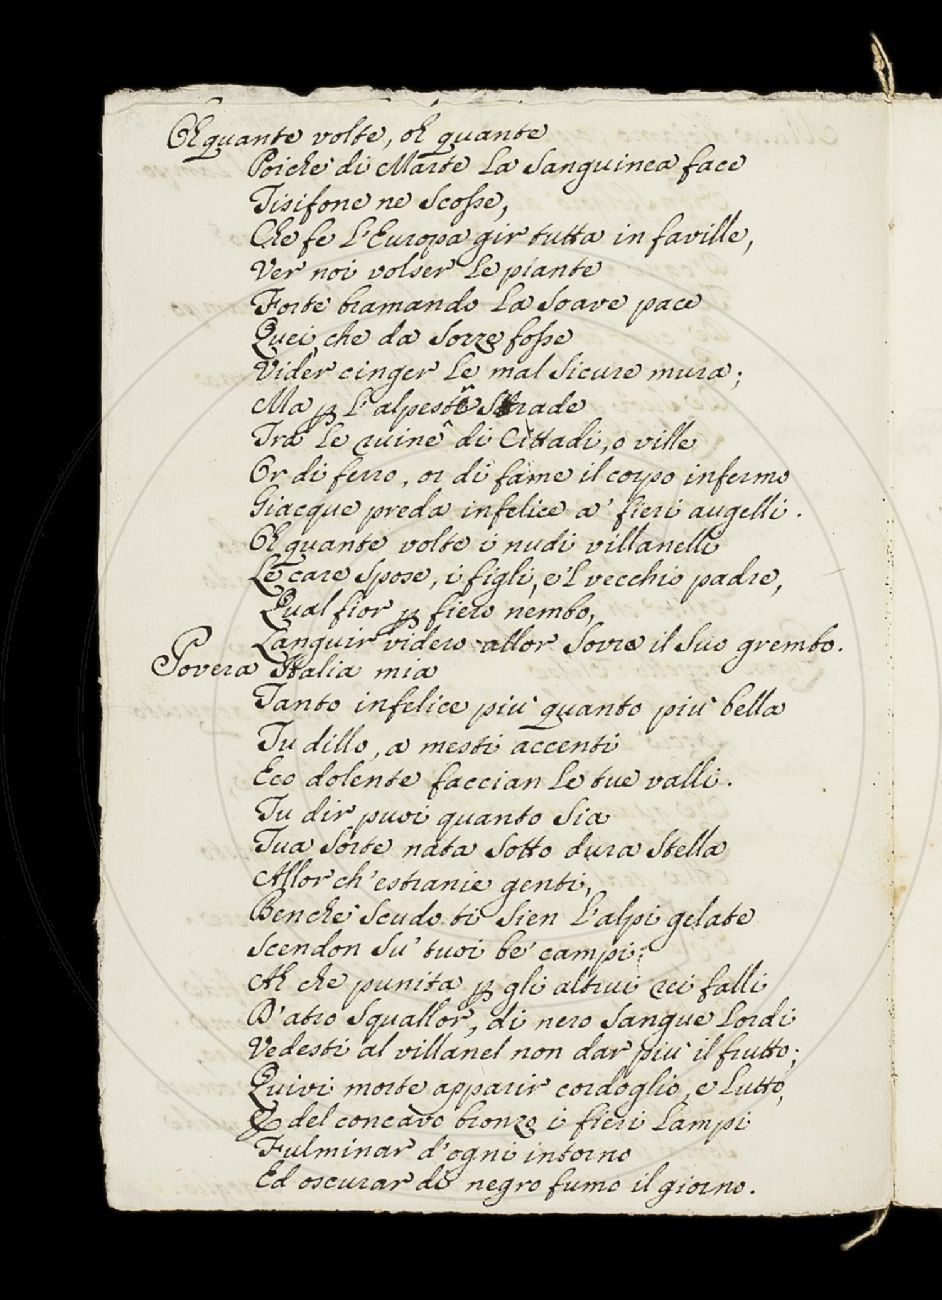 Oh quante volte, oh quante
Poiche' di Marte la sanguinea face
Tisifone ne scosse,
Che fe l'Europa gir tutta in faville,
Ver noi volser le piante
Forte bramando la soave pace
Quei, che da Torre fosse
Vider cinger le mal sicure mura;
Ma p l'alpestri strade
Tra le ruine di Cittadi, o ville
Or di ferro, or di fame il corpo infermo
Giacque preda infelice a' fieri augelli.
Oh quante volte i nudi villanelli
Le care spose, i figli, e'l vecchio padre,
Qual fior p fiero nembo,
Languir videro allor sovra il suo grembo.
Povera Italia mia
Tanto infelice piu' quanto piu' bella
Tu dillo, a mesti accenti
Eco dolente faccian le tue valli.
Tu dir puoi quanto sia
Tua sorte nata sotto dura stella
Allor ch'estranie genti,
Benche' scudo ti sien l'alpi gelate
Scendon su' tuoi be' campi;
Ah che punita p gli altrui rei falli
D'atro squallor, di nero sangue lordi
Vedesti al villanel non dar piu' il frutto;
Quivi morte apparir cordoglio, e lutto,
E del concavo bronzo i fieri lampi
Fulminar d'ogni intorno
Ed oscurar di negro fumo il giorno.